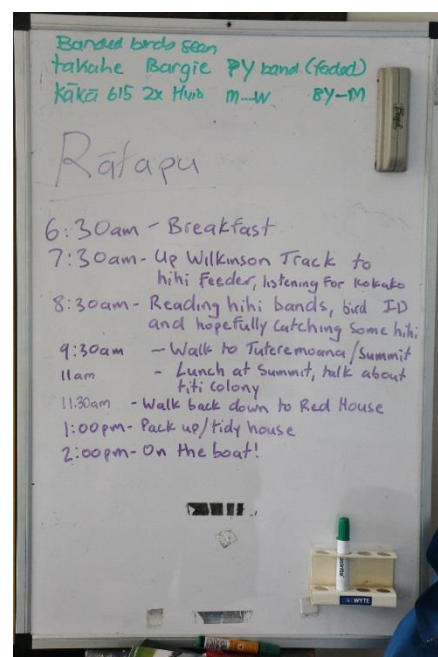 Banded birds seen
takahe Bargie PY band (faded)
Kākā 615 2x Huia m-W BY-M
Rātapu
6:30am - Breakfast
7:30am - Up Wilkinson Track to
hihi Feeder, listening for Kokako
8:30am - Reading hihi bands, bird ID
and hopefully catching some hihi
9:30am - Walk to Tuteremoana/Summit
11am - Lunch at Summit, talk about
titi colony
11.30am - Walk back down to Red House
1:00pm - Pack up/tidy house
2:00pm - On the boat!
WYTE